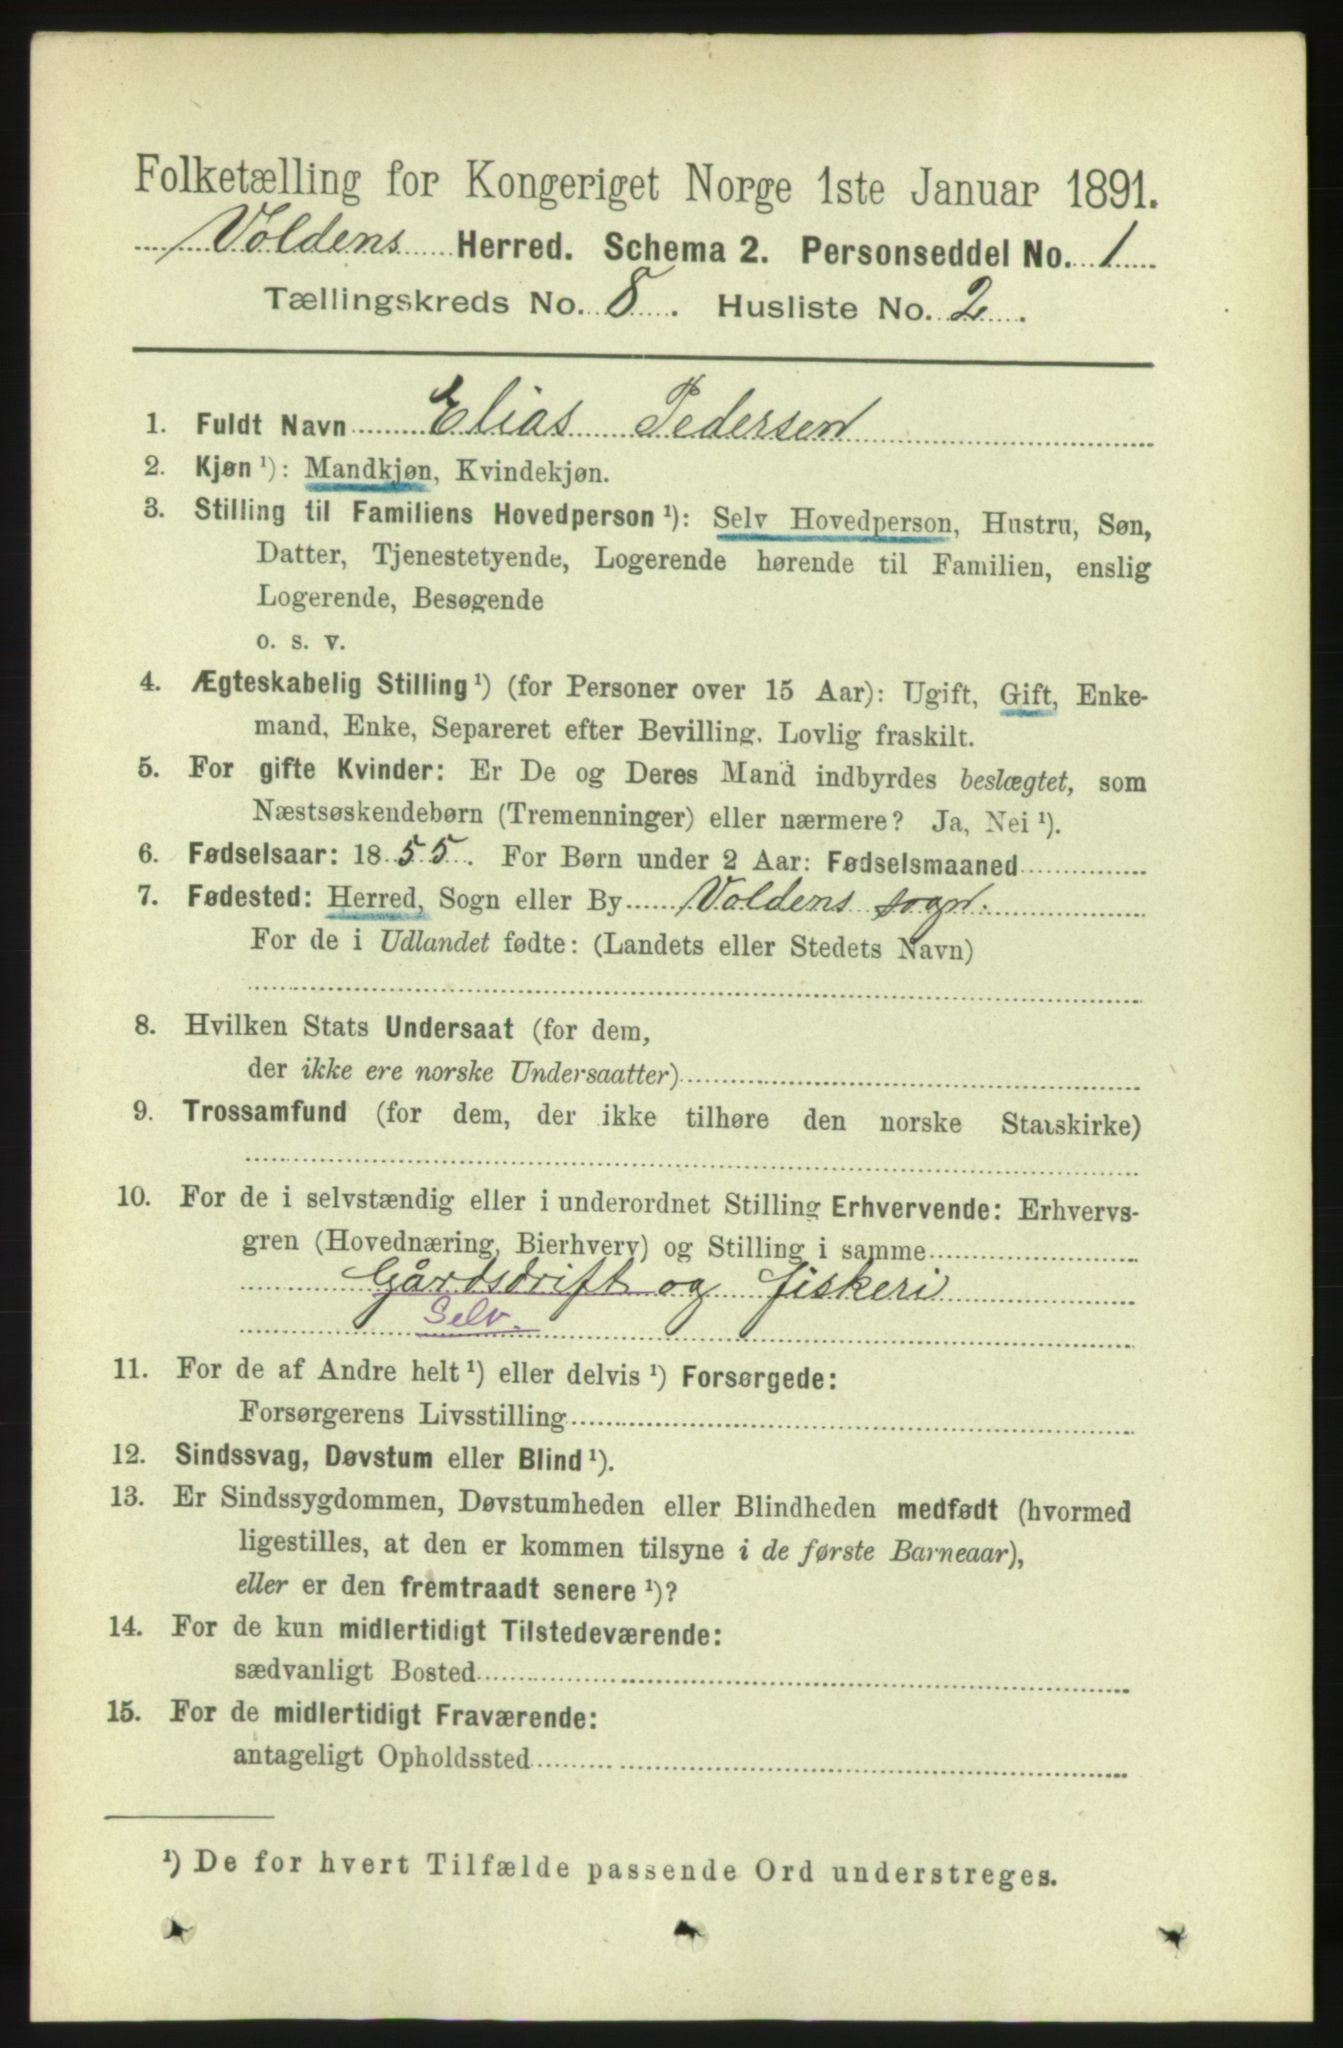 Folketælling for Kongeriget Norge 1ste Januar 1891.
Voldens Herred. Schema 2. Personseddel No. 1
Tællingskreds No. 8. Husliste No. 2.
1. Fuldt Navn Elias Pedersen
2. Kjøn ¹): Mandkjøn, Kvindekjøn.
3. Stilling til Familiens Hovedperson ¹): Selv Hovedperson, Hustru, Søn,
Datter, Tjenestetyende, Logerende hørende til Familien, enslig
Logerende, Besøgende
o. s. v.
4. Ægteskabelig Stilling ¹) (for Personer over 15 Aar): Ugift, Gift, Enke-
mand, Enke, Separeret efter Bevilling. Lovlig fraskilt.
5. For gifte Kvinder: Er De og Deres Mand indbyrdes beslægtet, som
Næstsøskendebørn (Tremenninger) eller nærmere? Ja, Nei ¹).
6. Fødselsaar: 1855. For Børn under 2 Aar: Fødselsmaaned
7. Fødested: Herred, Sogn eller By Voldens sogn.
For de i Udlandet fødte: (Landets eller Stedets Navn)
8. Hvilken Stats Undersaat (for dem,
der ikke ere norske Undersaatter)
9. Trossamfund (for dem, der ikke tilhøre den norske Statskirke)
10. For de i selvstændig eller i underordnet Stilling Erhvervende: Erhvervs-
gren (Hovednæring, Bierhverv) og Stilling i samme
Gårdsdrift og fiskeri
Selv.
11. For de af Andre helt ¹) eller delvis ¹) Forsørgede:
Forsørgerens Livsstilling
12. Sindssvag, Døvstum eller Blind ¹).
13. Er Sindssygdommen, Døvstumheden eller Blindheden medfødt (hvormed
ligestilles, at den er kommen tilsyne i de første Barneaar),
eller er den fremtraadt senere ¹)?
14. For de kun midlertidigt Tilstedeværende:
sædvanligt Bosted
15. For de midlertidigt Fraværende:
antageligt Opholdssted
¹) De for hvert Tilfælde passende Ord understreges.